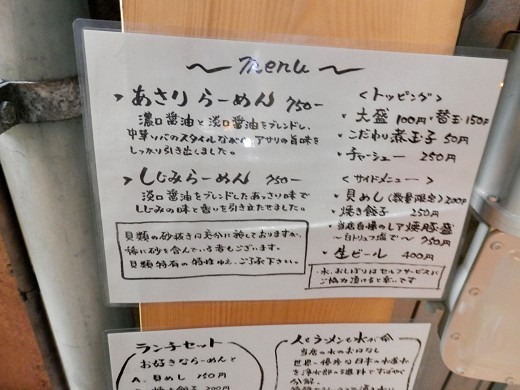 〜 menu 〜
あさりらーめん 750-
濃口醤油と淡口醤油をブレンドし、
中華ソバのスタイルながら アサリの旨味を
しっかり引き出しました。
しじみらーめん 750-
淡口醤油をブレンドしたあっさり味で
しじみの味と香いを引き立たせました。
貝類の砂抜きは充分に施しておりますが、
稀に砂を含んでいる事もございます。
貝類特有の特性ゆえ、ご了承下さい。
<トッピング>
・大盛 100円・替玉 150円
・こだわり煮玉子 50円
・チャーシュー 250円
<サイドメニュー>
・貝めし(数量限定) 200円
・焼き餃子 250円
・当店自慢のレア焼豚盛
〜白トリュフ塩で〜 250円
・生ビール 400円
・水、おしぼりはセルフサービスに
ご協力頂けると幸いです
ランチセット
お好きならーめんと
A. 貝めし 150円
人とラーメンと水が命
当店の水のおはなし
世界一優秀な日本の水道水
を浄水器で
分解。